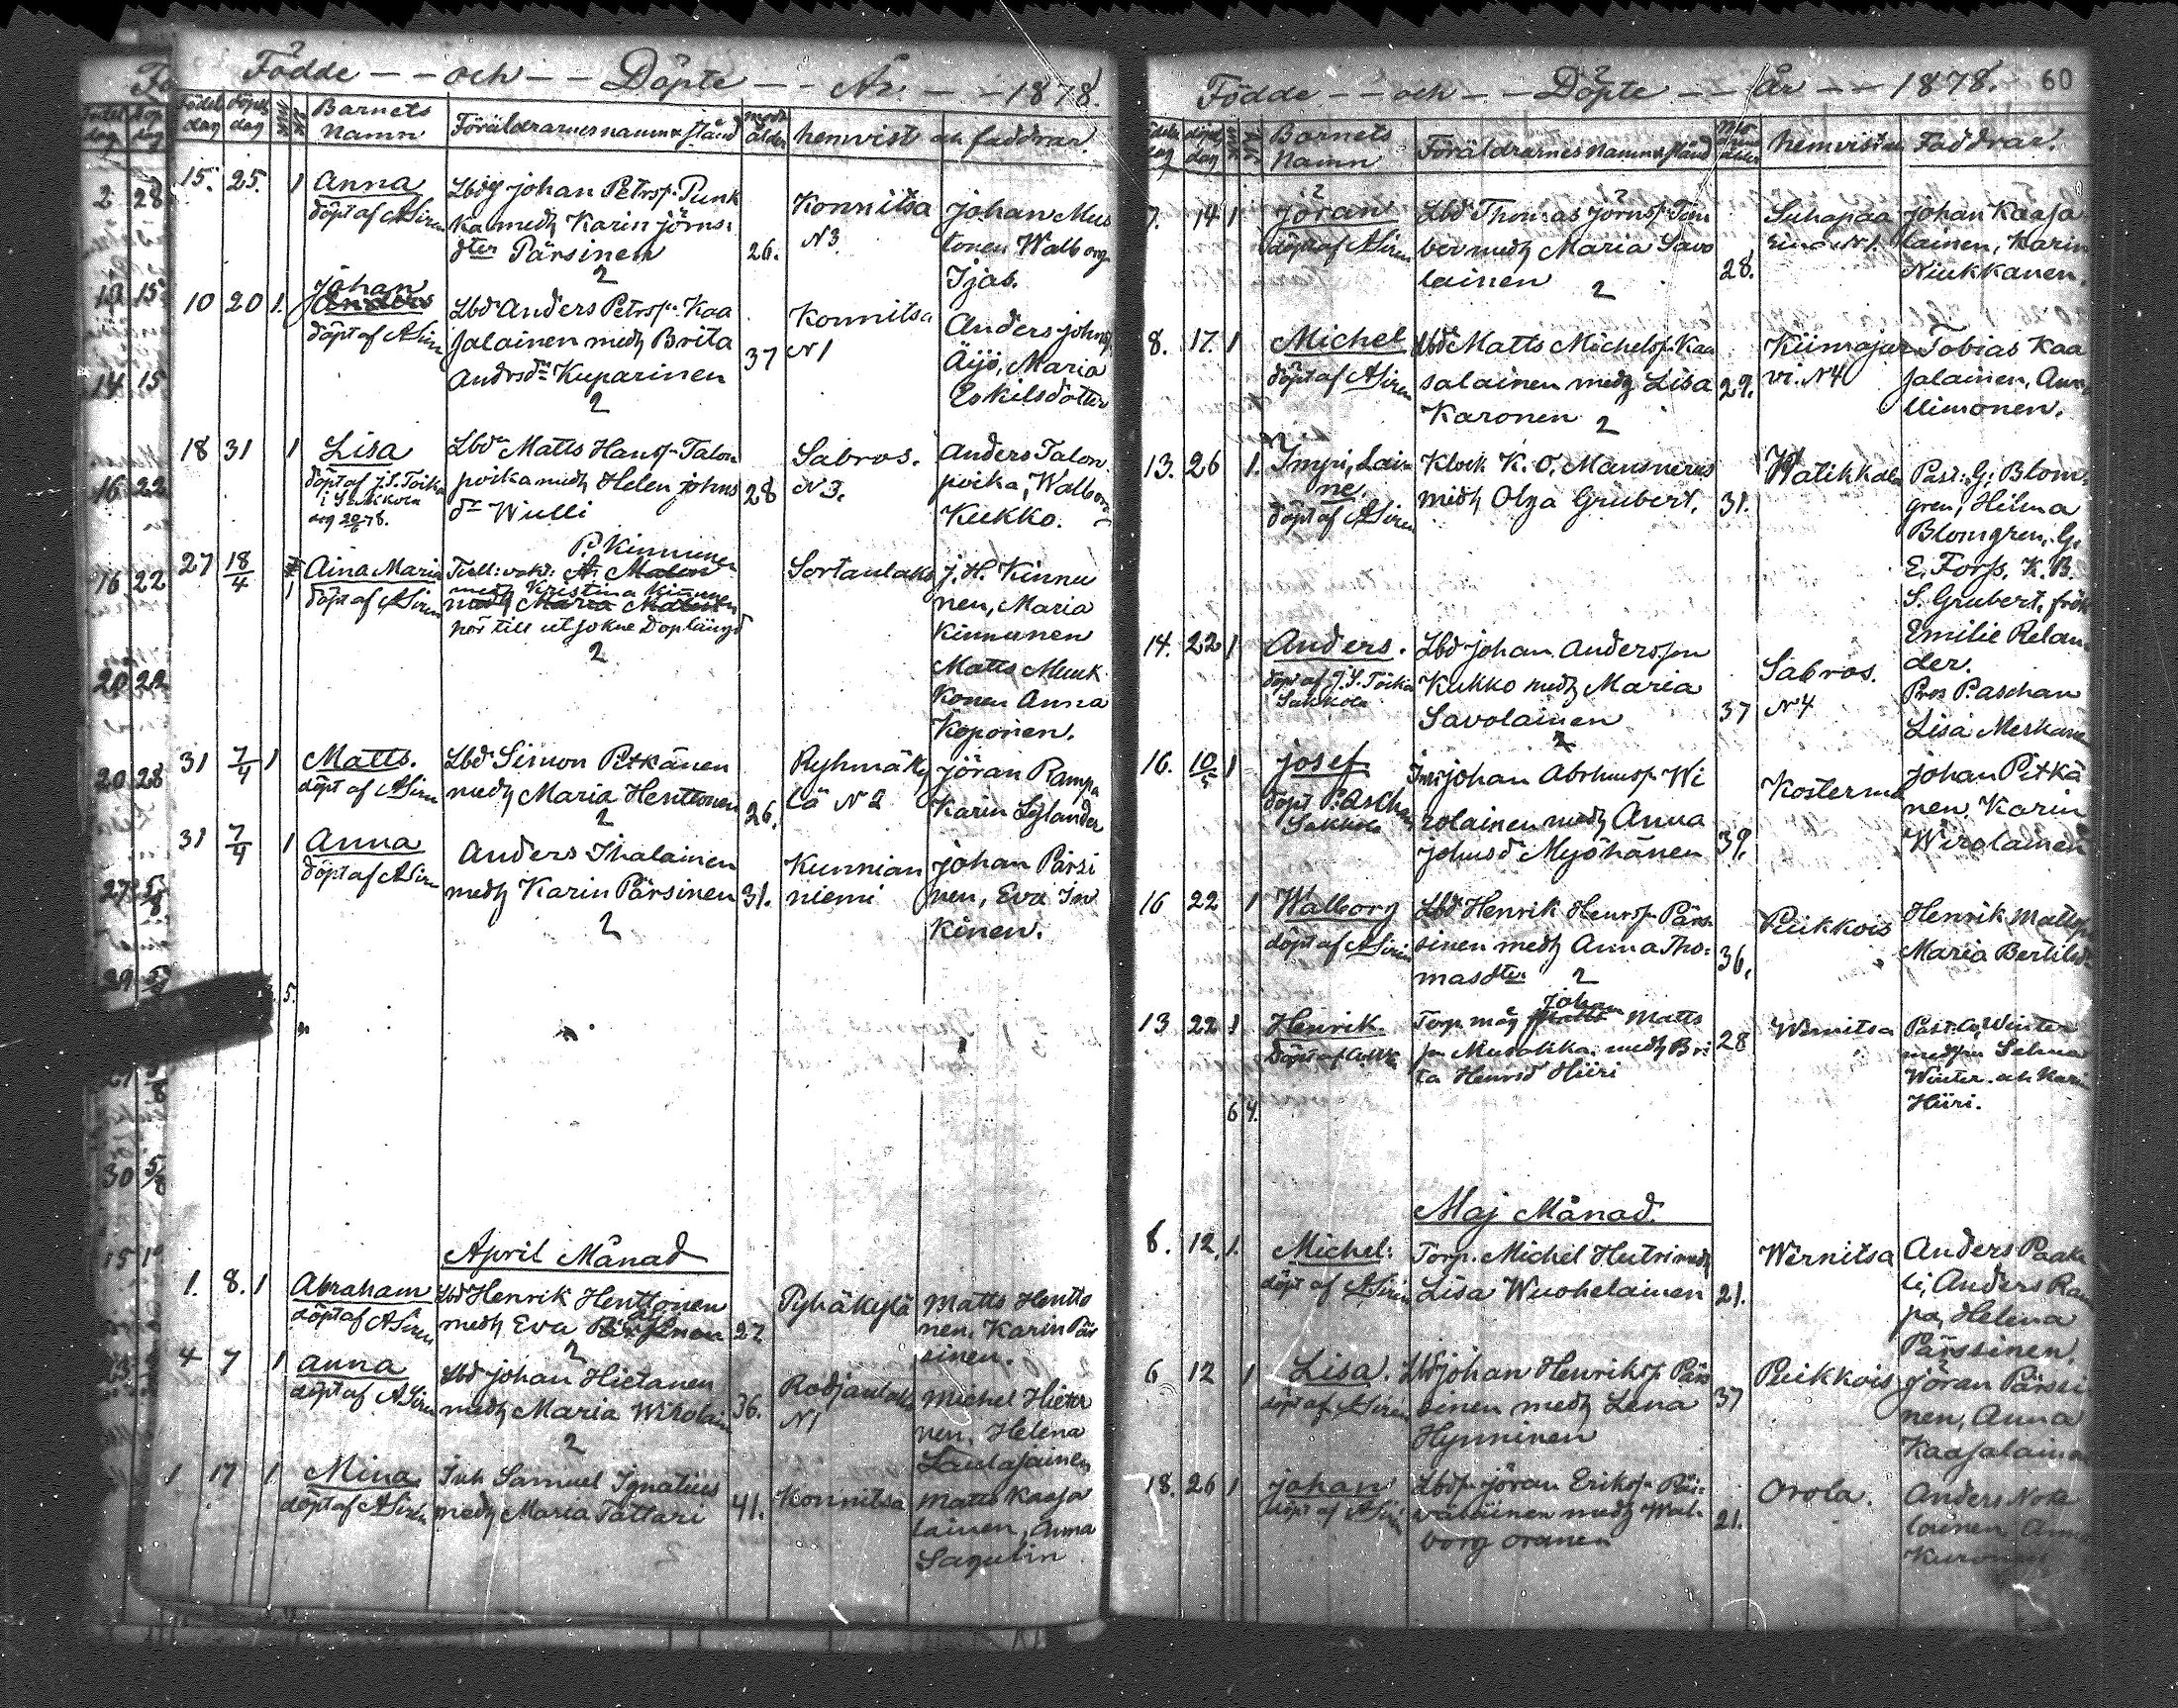 Födde - - och - - Döpte - - År - - 1878.
Födels dag
Döpels dag
Barnets Namn
Föräldrarnes namn & stånd
mod. ålder
hemvist och faddrar.
15. 25. 1 Anna
döpt af A Siren
Lbdg Johan Petrsp. Punk
ka medh Karin Jörns.
dter Pärsinen
2
26.
Konnitsa
N 3.
Johan Mus
tonen Walborg
Ijäs.
10 20 1. Johan
Anders
döpt af A Siren
Lbd Anders Petrsp. Kaa
salainen medh Brita
Andrsdr Kuparinen
2
37
Konnitsa
N 1
Anders Johnsp.
Äijö, Maria
Eskilsdotter
18 31 1 Lisa
döpt af J. S. Toika
i Sakkola
Lbdn Matts Hansp. Talon
poika medh Helen Johns
dr Wulli
28
Sabros.
N 3.
Anders Talon
poika, Walborg
Kukko.
27 18/4 1 Aina Maria
döpt af A Siren
P. Kinnunen
Tull: vakt. A. Malen
medh Kristina Kinnunen
medh Maria
hör till utsokne Doplängd
2
Sortanlaks
J. H. Kinnu
nen, Maria
Kinnunen
Matts Muuk
konen Anna
Koponen.
31 7/4 1 Matts.
döpt af A Siren
Lbd Simon Pitkänen
medh Maria Henttonen
2
26.
Ryhmäky
lä N 2
Jöran Rampa
Karin Sylander
31 7/4 1 Anna
döpt af A Siren
Anders Ihalainen
medh Karin Pärsinen
2
31.
Kunnian
niemi
Johan Pärsi
nen, Eva In
kinen.
5.
April Månad
1. 8. 1 Abraham
döpt af A Siren
Lbd Henrik Henttonen
medh Eva
2
27
Pyhäkylä
Matts Hentto
nen, Karin Pär
sinen.
4 7 1 Anna
döpt af A Siren
Lbd Johan Hietanen
medh Maria Wirolain
2
36.
Rodjanlaks
N 1
Michel Hieta
nen, Helena
Laulajainen
1 17 1 Mina
döpt af A Siren
Inh Samuel Ignatius
medh Maria Tattari
41.
Konnitsa
Matts Kaasa
lainen, Anna
Sagulin
Födde - - och - - Döpte - - år - - 1878. 60
Födels dag
döpels dag
Barnets Namn
Föräldrarnes Namn & stånd
Moderns ålder
hemvist och Faddrar.
7. 14 1 Jöran
döpt af A Siren
Lbd Thomas Jörnsp. Tam
ber medh Maria Savo
lainen 2
28.
Suhapaa
N 1.
Johan Kaasa
lainen, Karin
Niukkanen.
8. 17. 1 Michel
döpt af A Siren
Lbd Matts Michelsp. Kaa
salainen medh Lisa
Karonen 2
29.
Kiimajar
vi. N 4
Tobias Kaa
salainen, Anna
Ulimonen.
13. 26 1. Impi, Lai
ne.
döpt af A Siren
Klock K. O. Mansnerus
medh Olga Grubert.
31.
Walikkala
Past: G: Blom
gren, Hilma
Blomgren, G.
E. Forss. K. B.
S. Grubert, frök
Emilie Relan
der.
14. 22 1 Anders.
döpt af J. S. Toika
Sakkola
Lbd Johan Andersson
Kukko medh Maria
Savolainen
2
37
Sabros.
N 4
Pros P. aschan
Lisa Meskanen
16. 10/5 1 Josef
döpt P. Aschan
Sakkola
Johan Abrhmsp. Wi
rolainen medh Anna
Johnsdr Myöhänen
39.
Kostermä
Johan Pitkä
nen. Karin
Wirolainen
16 22 1 Walborg
döpt af A Siren
Lbd Henrik Henrsp. Pärs
sinen medh Anna Tho:
masdtr. 2
36.
Piikkois
Henrik Mattsp
Maria Bertilsdr
13 22 1 Henrik
Torp. måg Johan Matts
sn Musakka medh Bri
ta Henrsd Hiiri
28
Wernitsa
Past: Winter
med fru Selma
Winter och Karin
Hiiri.
6 4.
Maj Månad.
8. 12. 1. Michel:
döpt af A Siren
Torp. Michel Hutri medh
Lisa Wuohelainen
21.
Wernitsa
Anders Paak
li, Anders Ram
pa, Helena
Pärssinen.
6 12 1 Lisa.
döpt af A Siren
Lbd Johan Henriksp. Pärs
sinen medh Lena
Hynninen
37
Piikkois
Jöran Pärssi
nen, Anna
Kaasalainen
18. 26 1 Johan
döpt af A Siren
Lbdsn Jöran Eriksp. Päi
väläinen medh Wal
borg Oranen
21.
Orola.
Anders Noke
lainen Anna